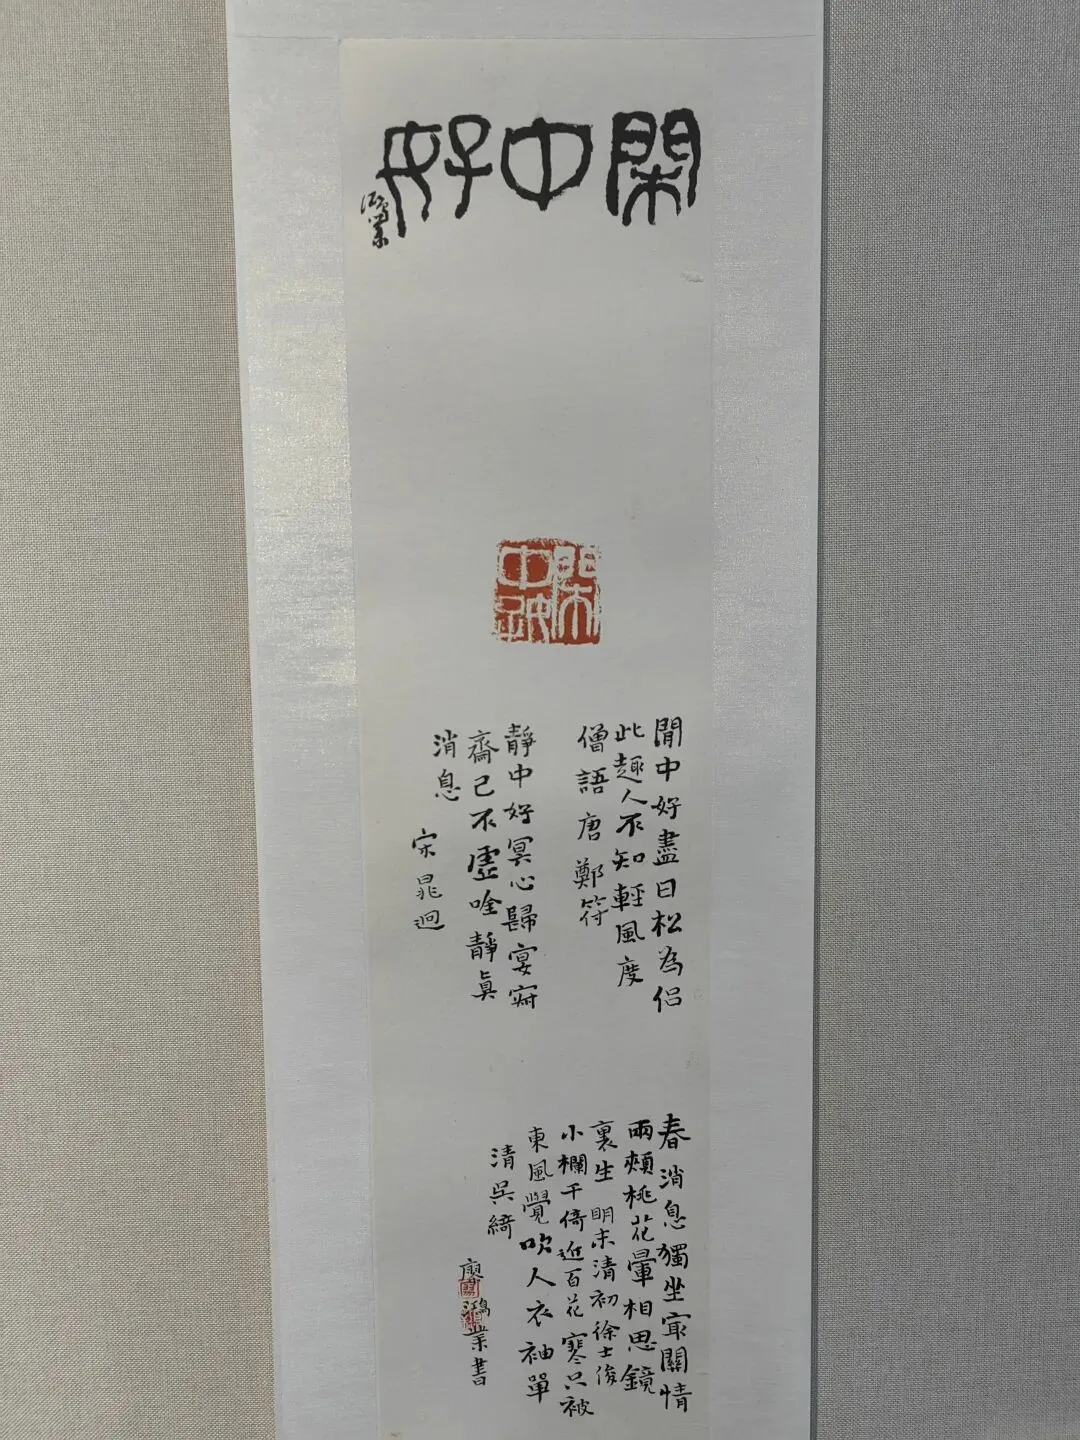 閑中好
鴻業
閑中好
閒中好盡日松為侶
此趣人不知輕風度
僧語唐鄭符
靜中好冥心歸宴寂
齋己不虛唫靜真
消息
宋晁迥
春消息獨坐最關情
兩頰桃花暈相思鏡
裏生 明末清初徐士俊
小欄干倚近百花寒只被
東風覺吹人衣袖單
清吳綺
廖鴻業書